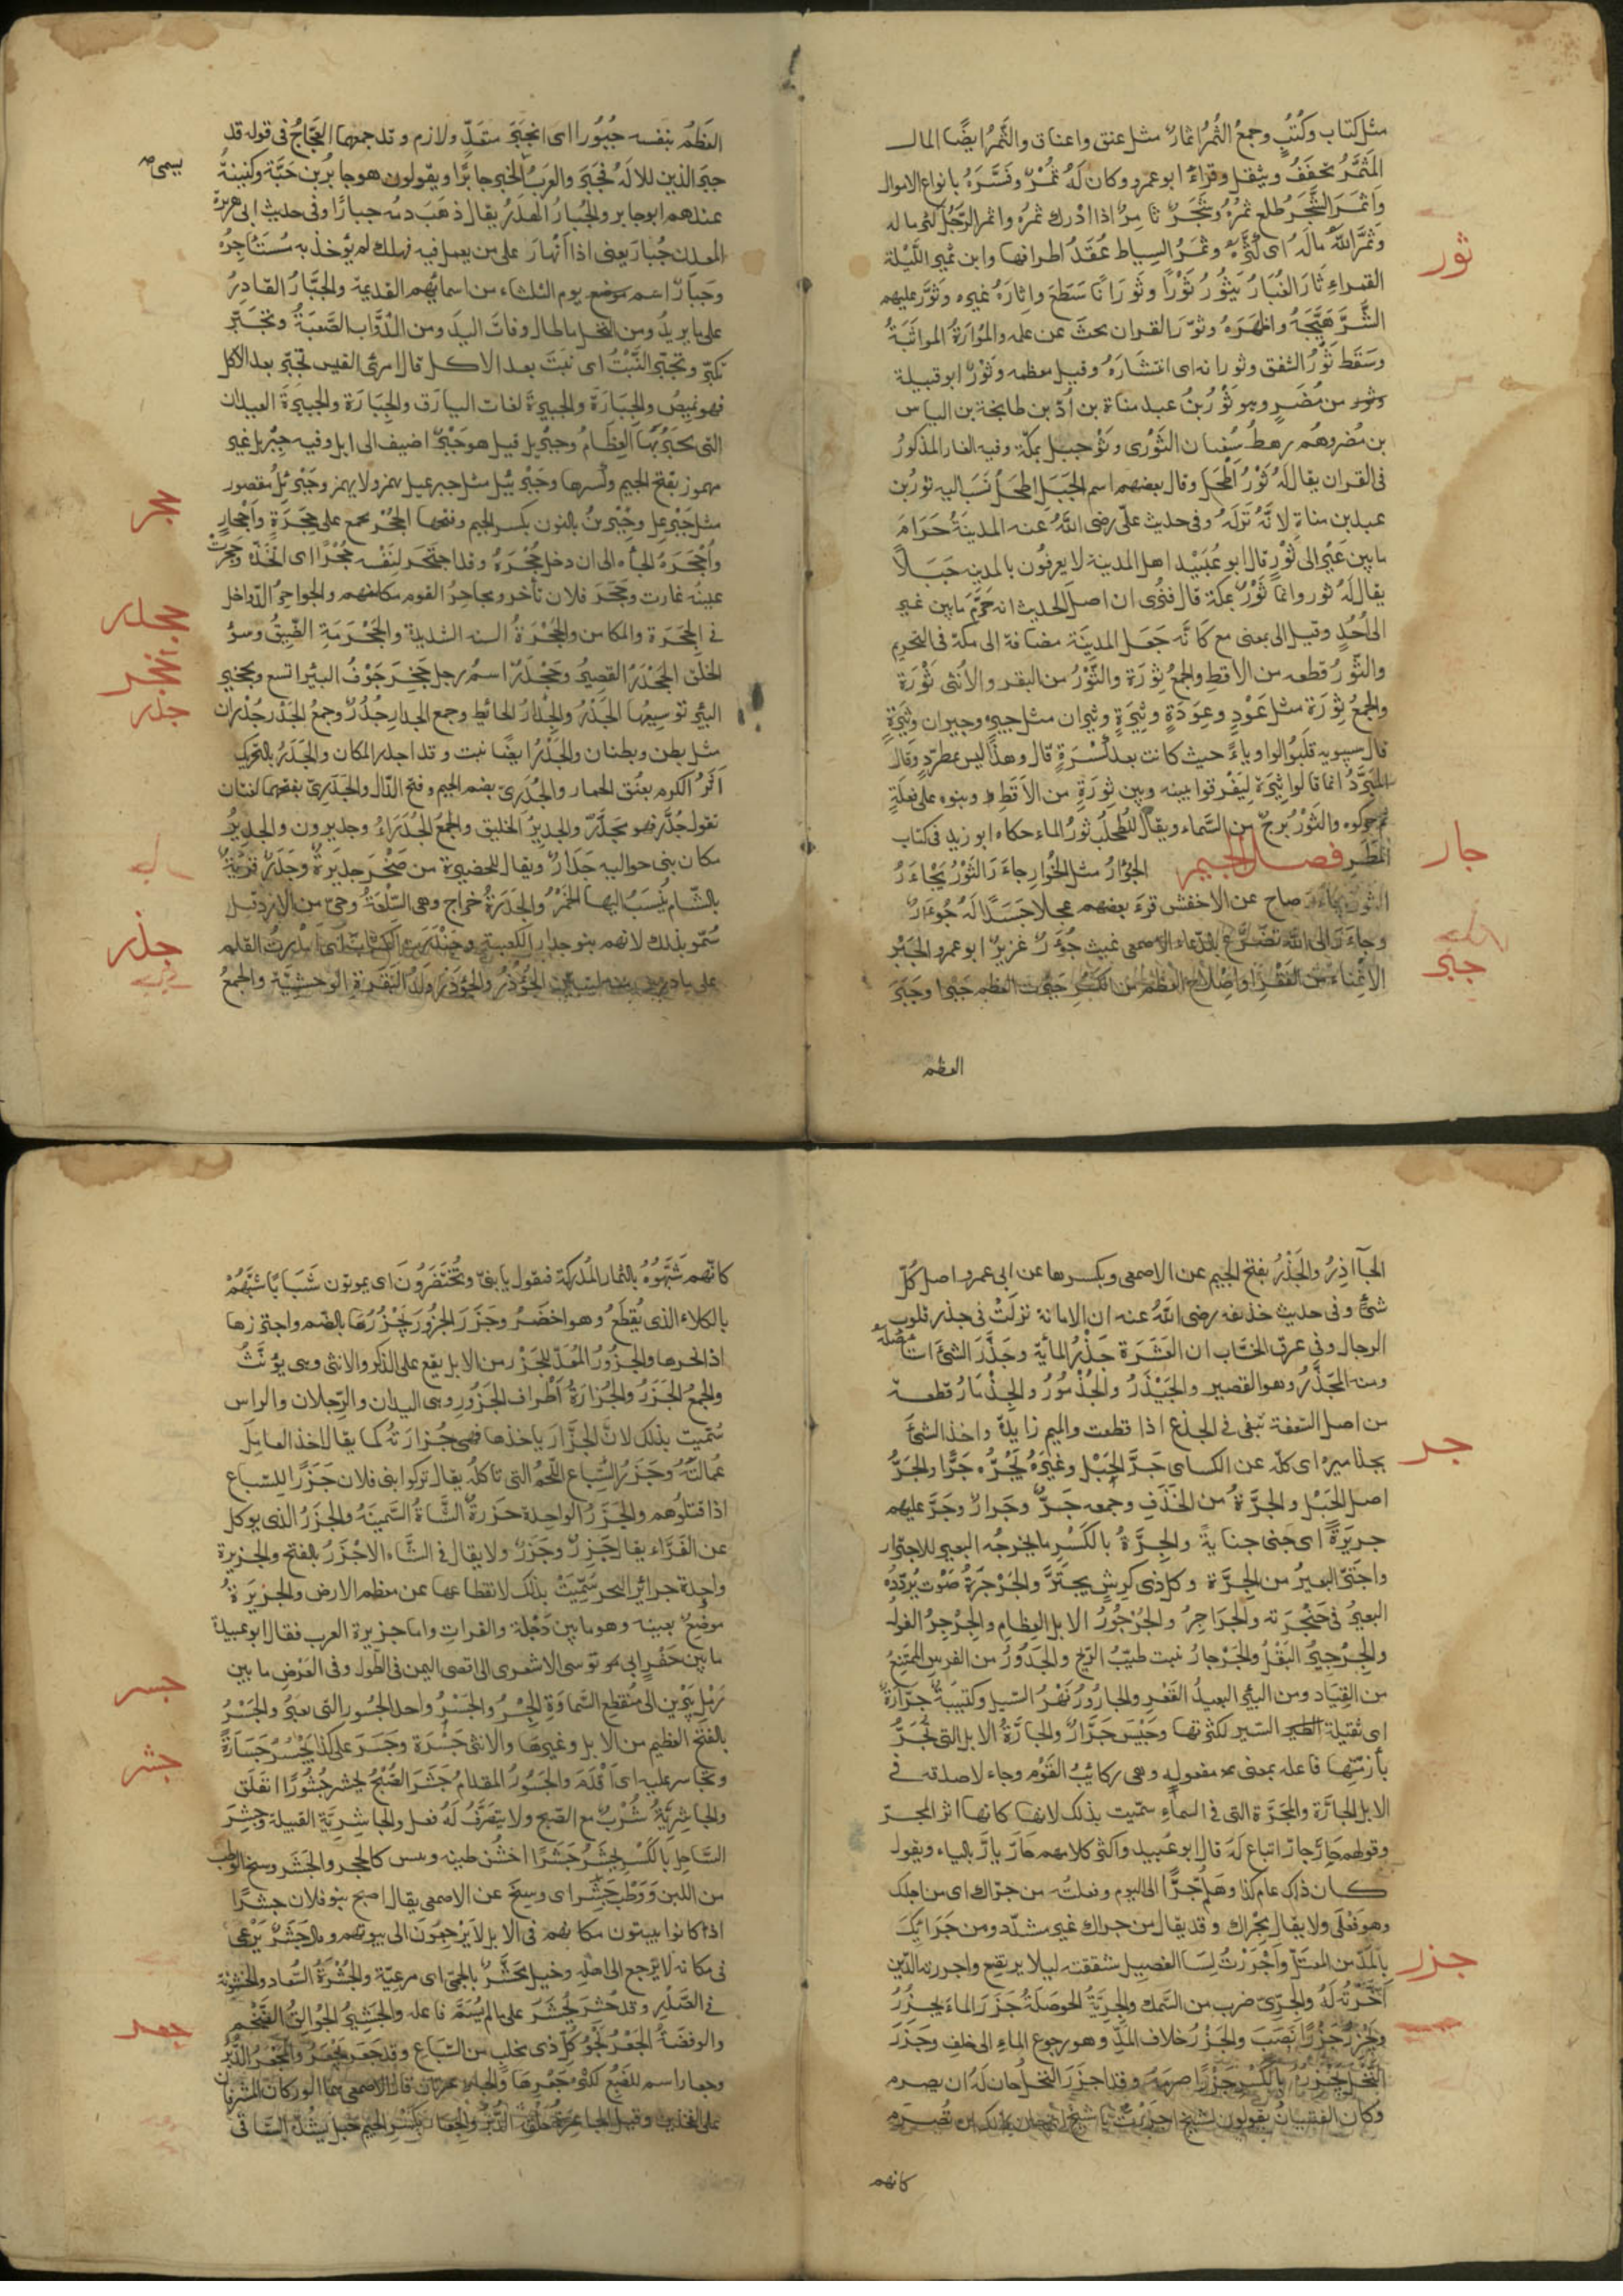 مثل كتاب وكُتُبٍ وجمعُ الثُمُرُ اثمارٌ مثل عنق واعناق والثَّمُرُ ايضًا المال
المُثَمَّرُ يخفَفُ ويثقل وقراءُ ابو عمرو وكان لَهُ ثُمُرٌ وفَسَّرَهُ بانواع الاموال
وَاثْمَرَ الشَّجَرُ طلع ثمرُهُ وشَجَرٌ ثامِرٌ اذا ادْرك ثمرُه واثمر الرّجُلُ كثر ماله
وثَمَّرَ اللهُ مالَهُ اى كثَّرَهُ وثمَرُ السِياط عُقَدُ اطرافها وابن ثَمِيرٍ اللَّيْلة
ثور
القمراء ثَارَ الغُبَارُ يَثُورُ ثَوْرًا وثَورَانًا سَطَعَ واثارَهُ غيره وثَوَّرَ عليهم
الشَّرَّ هَيَّجَهُ واظهرَهُ وثوّرَ القرآن بحثَ عن علمه والمُثاوَرةُ المواثَبَةُ
وسَقَط ثَوْرُ الشفق وثورانه اى انتشارَهُ وقيل معظمه وثَوْرٌ ابو قبيلة
من مُضَرٍ وهو ثَوْرُ بنُ عبد مناة بن اُدّ بن طابخة بن الياس
بن مُضر وهُم رهطُ سُفيان الثَوْرى وثَوْر جبل بمكّة وفيه الغار المذكورُ
فى القرآن يقال لَهُ ثَوْرُ اَطْحَل وقال بعضهم اسم الجَبَل اطحَلُ نَسَبَ اليه ثور بن
عبد بن مناةٍ لانَّهُ نَزَلَهُ وفى حديث علىّ رضى اللهُ عنه المدينَةُ حَرَامَ
ما بين عَيْرٍ الى ثَوْرٍ قال ابو عُبَيْد اهل المدينة لا يعرفُون بالمدينة جَبَلاً
يقال لَهُ ثور وانما ثَوْرٌ بمكة قال فنُرى ان اصل الحديث انه حَرَّمَ ما بين عير
الى اُحُدٍ وقيل الى بمعنى مع كَانَّه جَعَل المدينَة مضافة الى مكة فى التحريم
والثَّورُ قطعه من الاقط والجمعُ ثِوَرَة والثَّوْرُ من البقر والاُنثى ثَوْرَة
والجمعُ ثِوَرَة مثل عَوْدٍ وعِوَدَةٍ وثِيَرَةٍ وثيران مثل جيرةٍ وجيران وثِيَرَةٍ
قال سيبويه قلبوُا الواو ياءً حيث كانت بعد كَسْرَةٍ قال وهذا ليس بمطرّدٍ وقال
المُبَرَّدُ انما قالوا ثِيَرَة ليَفْرقوا بينه وبين ثِوَرَةٍ من الاَقطِ وبنوه على فعلةٍ
ثم حركوه والثَوْرُ برجٌ من السَّماء ويقال للطُحلب ثورُ الماء حكاه ابو زيد فى كتاب
المَطَرِ فصل الجيم الجُؤَارُ مثل الخُوار جاءَرَ الثَوْرُ يَجْاءَرُ
جار
صاح عن الاخفش قرءَ بعضهم عجلا جَسَدًا لَهُ جُوءَارٌ
وجاءَرَ الى الله تضرَّعَ بالدّعاء الاصمعى غيث جُؤَرٌ غزيرٌ ابو عمرو الجَبْر
جبر
الاغْناء من الفَقْر واصْلاح العظم من الكَسْرِ جَبَرْتُ العظم جَبْرًا وجَبَرَ
العظم
العَظمُ بنفسه جُبُورًا اى انجبَرَ متعَدٍّ ولازم وقد جمعهما العَجَّاجُ فى قوله قد
جبَرَ الذين الالَهُ فجَبَرَ والعَرَبُ الخبز جابرًا ويقولون هو جابرُ بن حَبَّة وكنيتهُ
يسمى صح
عندهم ابو جابر والجُبارُ الهَدَرُ يقال ذهَبَ دمه جبارًا وفى حديث ابى هريرة
المعدن جُبار يعنى اذا انهارَ على من يعمل فيه فهلك لم يُؤخذ به مُسْتَاجِرُهُ
وجُبَارٌ اسم يوم الثلثاء من اسمائهم القديمة والجَبَّارُ القادِرُ
على ما يريد ومن النخل ما طال وفاتَ اليدَ ومن الدَّوَابّ الصَّعبَةُ وتَجَبَّرَ
تكبَّر وتجَبَّر النَّبْتُ اى نبَتَ بعد الاكل قال امرئ القيس تجبَّر بعد الاكل
فهو نميصُ والجِبَارَة والجبيرةُ لغات اليبارق والجِبَارَة والجبيرَة العيدان
التى يجبَرُ بها العِظَامُ وجبْريل قيل هو جَبْرٌ اضيف الى ايل وفيه جِبْريل غير
مهموز بفتح الجيم وكسرها وجَبْرَئيل مثل جبرعيل يهمز ولا يهمز وجَبْرَئِل مُقصور
جحر
مثل جَبْرعِل وجِبْرينُ بالنون بكسر الجيم وفتحها الجُحْر يجمع على جِحَرَةٍ وَاَجْحارٍ
وأُجْحَرَهُ الجأه الى ان دخل جُحْرَهُ وقد اجتحَر لنَفْسه جُحْرًا اى اتخَذَه وحجرتْ
جحدر
عينُه غارت وجَحَرَ فلان تأخر ومجاحِرُ القوم مكامنهم والجواحرُ الدّواخل
فى الجِحَرَة والمكامن والجَحْرَةُ السنه الشديدة والجَحْرَمَةِ الضّيقُ وسوُ
جخر
الخلق الجَحْدَرُ القصيرُ وجَحْدَرٌ اسمُ رجل جَخِرَ جَوْفُ البئر اتسع وتجخير
جدر
البئر توسيعُها الجَدْرُ والجِدارُ الحائط وجمع الجدار جُدُرٌ وجمعُ الجَدْر جُدْران
مثل بطن وبطنان والجَدْرُ ايضًا نبت وقد اجدر المكان والجَدَرُ بالتحريك
اَثرُ الكدم بعُنُق الحمار والجُدَرىّ بضم الجيم وفتح الدّال والجَدَرِىّ بفتحهما لغتان
تقول جُدَّر فهو مجَدَّرٌ والجديرُ الخليق والجمعُ الجُدَرَاءُ وجديرون والجديرُ
مكان بنى حواليه جَدَارٌ ويقال للحضيرة من صَخْرٍ جديرَةٌ وجَدَرٌ قرْيَةٌ
بالشّام يُنسَبُ اليها الخَمْرُ والجَدَرَةُ خراج وهى السّلعَةُ وحىّ من الازد قيل
سُمّو بذلك لانهم بنو جدار الكعبة
جذر
الجُؤْذُرُ والجُوذَرُ ولَدُ البَقَرة الوحشيَّة والجمعُ
الجَآاذِرُ والجَذْرُ بفتح الجيم عن الاصمعى وبكسرها عن ابى عمرو اصل كُلّ
شئٍ وفى حديث حذيفه رضى اللهُ عنه ان الامانة نزلَتْ فى جذر قلوب
الرجال وفى عرق الحسَّاب ان العَشَرة جَذْرُ المأيَة وجَذَّرَ الشئَ استأصَلهُ
ومنه المُجَذَّرُ وهو القصير والجَيْدَرُ والجُذْمُورُ والجِذْمَارُ قطعة
من اصل السّعفة تبقى فى الجذع اذا قطعت والميم زايدة واخذ الشئَ
جر
بجذاميرهُ اى كلّه عن الكساى جَرَّ الحَبْل وغيرَهُ يَجُرُّه جَرًّا والجَرُّ
اصل الجَبْل والجَرَّةُ من الخَذَفِ وجمعه جَرٌّ وجَرارٌ وجَرَّ عليهم
جريرَةً اى جنى جنايةً والجِرَّةُ بالكَسْر ما يخرجُه البعير للاجترار
واجْتَرَّ البعيرُ من الجِرَّة وكل ذى كرِشٍ يجتَرّ والجَرْجَرَةُ صَوْت يُردّدهُ
البعيرُ فى حَنْجَرَته والجَراجرُ والجُرْجُورُ الابل العِظام والجِرْجِرُ الفولُ
والجِرْجِيرُ البَقْلُ والجَرْجارُ نبت طيّبُ الرّيح والجَرُورُ من الفرس المُمَتنعُ
من القِيَاد ومن البئر البعيدُ القعْر والجارُورُ نَهْرُ السّيل وكتيبَةٌ جَرّارَةٌ
اى ثقيلة السّير لكثرتها وجَيْش جَرَّارٌ والجارَّةُ الابل التى تُجَرُّ
بأزمَّتِها فاعله بمعنى مفعولةٍ وهى ركائبُ القَوْم وجاء لاصدقه فى
الابل الجارَّة والمَجَرَّة التى فى السماءِ سمّيت بذلك لانها كانها اثر المجرّ
وقولهم حَارّ جارّ اتباع لَهُ قال ابو عُبيد واكثر كلامهم حَارّ يارّ بالياء ويقول
كان ذلك عام كذا وهَلُمَّ جَرًّا الى اليوم وفعلتُ من جرّاك اى من اجلك
وهو فعْلى ولا يقال مِجْراك وقد يقال من جراك غير مشدّد ومن جَرَائِكَ
جزر
بالمدّ من المعتَلّ وَاَجْرَرْتُ لسَان الفصيل شققته ليلا يرتضع واجررته الدّين
اَخّرْتُه لَهُ والجِرّىّ ضرب من السّمك والجِرّيَّةُ الحَوصَلَةُ جَزَرَ الماءَ يجزُرُ
ويَجْزِرُ جَزْرًا نَضَبَ والجَزْرُ خلاف المَدّ وهو رجوع الماءِ الى خلفٍ وجَزَرَ
النَّخْل يجْزِرُ بالكَسْر جَزْرًا صرَمَهُ وقد اجزَرَ النّخلُ حان لَهُ ان يصرم
وكان الفتيانُ يقولون لشيخ اجزَرْتَ يا شيخُ
كانهم
كانّهم شَبَّهُوهُ بالثمار المُدْرَكة فيقول يا بنىّ وتُخْتَضَرُونَ اى يموتون شَبَابًا شبَّهُمْ
بالكلاء الذى يُقطَعُ وهو اخضَرُ وجَزَرَ الجزُورَ يَجْزُرُهَا بالضم واجتزرها
اذا نحرها والجزُورُ المُعَدّ للجَزْر من الابل يقع على الذكر والانثى وهى يؤنثُ
والجمعُ الجُزُرُ والجُزارَةُ اَطراف الجَزُورِ وهى اليدان والرّجلان والراس
سُمّيت بذلك لانّ الجَزَّارَ ياخذها فهى جُزارَتهُ كما يقال اخذ العامِلُ
عُمالتَهُ وجَزَرُ السّباع اللّحمُ التى تاكلُه يقال تركوا بنى فلان جَزَرًا للسّباع
اذا قتلوُهم والجزَرُ الواحدة جَزَرةٌ الشَّاةُ السَّمينَةُ والجزَرُ الذى يوكل
عن الفَرَّاء يقال جَزِرٌ وجَزَرٌ ولا يقال فى الشَّاء الا جَزَرٌ بالفتح والجزيرة
واحِدة جزائر البحر سُمّيَتْ بذلك لانقطاعها عن معظم الارض والجزيرَةُ
موضعٌ بعينه وهو ما بين دَجلة والفرات واما جزيرة العرب فقال ابو عبيدة
ما بين حَفْرِ ابى موسى الاشعرى الى اقصى اليمن فى الطّول وفى العَرْضِ ما بين
جسر
رَمْلِ يَبْرين الى منْقَطع السَّماوَةِ الجِسْرُ والجَسْرُ واحد الجُسور التى يعبَرُ والجَسْرُ
بالفتح العظيم من الابل وغيرها والانثى جَسْرَة وجَسَرَ على كذا يَجْسُرُ جَسَارَةً
جشر
وتجاسر عليه اى اَقْدَمَ والجَسُورُ المقدامُ جَشَرَ الصُّبْحُ يَجْشُر جُشُورًا انفَلَق
والجاشِرِيَّةُ شُرْبٌ مع الصّبح ولا يتصَرَّفُ لَهُ فعل والجاشِرِيَّة القبيلة وجَشِرَ
السَّاحِل بالكَسْر يَجْشَرُ جَشَرًا اخشُن طينه ويبس كالحجر والجَشَر وسخ الوطب
من اللبن وَوَطْبٌ جَشِرٌ اى وسِخٌ عن الاصمعى يقال اصبح بنو فلان جشرًا
اذا كانوا يبيتون مكانهم فى الابل لا يَرْجعون الى بيوتهم ومال جَشَرٌ يَرْعى
فى مكانه لا يَرجع الى اهله وخيل مُجَشَّرٌ بالحِمىَ اى مرعيّة والجُشْرَةُ السُّعاد والخشونة
فى الصَّدْر وقد جُشِرَ يُجْشَرَ على ما لم يُسَمَّ فاعله والجَشِيرُ الجُوالِقُ الضَّخْم
جعر
والوفضَةُ الجَعْرُ نَجْوُ كلّ ذى مخلب من السّباع وقد جَعَرَ يجْعَرُ والمجعرُ الدُّبُرُ
وجعار اسم للضّبُع لكثرة جَعْرِها والجاعرتان قال الاصمعى هما الوركان المشرفان
على الفخذين وقيل الجاعِرَةُ حَلْقةُ الدُّبر والجعارُ بكَسْر الجيم حبل يشُدّ السَّاقى